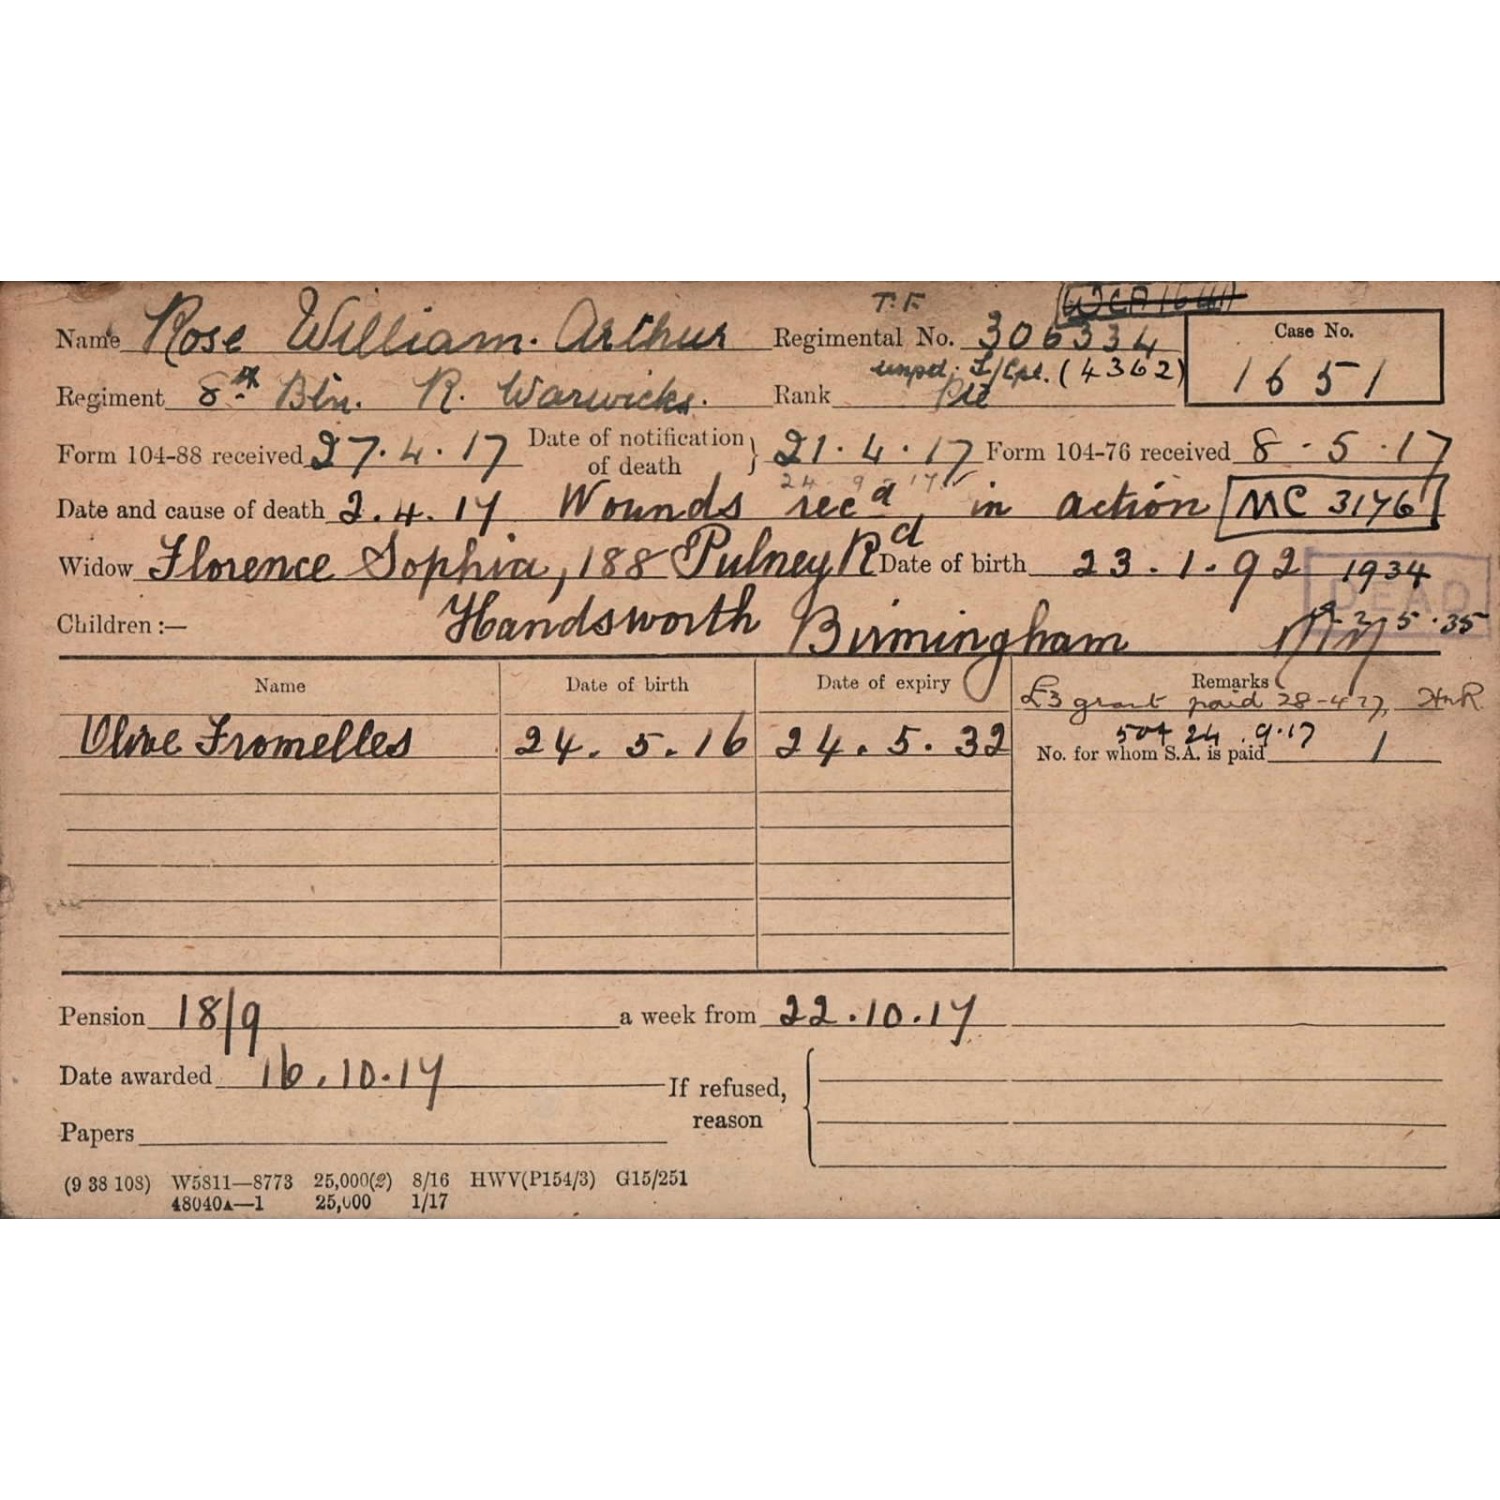 T.F.
Name Rose William. Arthur Regimental No. 306334 Case No.
unpd. L/Cpl. (4362)
Regiment 8th Btn. R. Warwicks. Rank Pte 1651
Form 104-88 received 27.4.17 Date of notification of death } 21.4.17 Form 104-76 received 8-5.17
24-9-17
Date and cause of death 2.4.17 Wounds rec'd, in action MC 3176
Widow Florence Sophia, 188 Putney Rd Date of birth 23.1.92 1934
DEAD
Children :— Handsworth Birmingham 5.35
Name Date of birth Date of expiry Remarks
£3 grant paid 28-4-17, HnR
Olive Fromelles 24.5.16 24.5.32 24.9.17
No. for whom S.A. is paid 1
Pension 18/9 a week from 22.10.17
Date awarded 16.10.17 If refused,
reason
Papers
(9 38 108) W5811—8773 25,000(2) 8/16 HWV(P154/3) G15/251
48040A—1 25,000 1/17